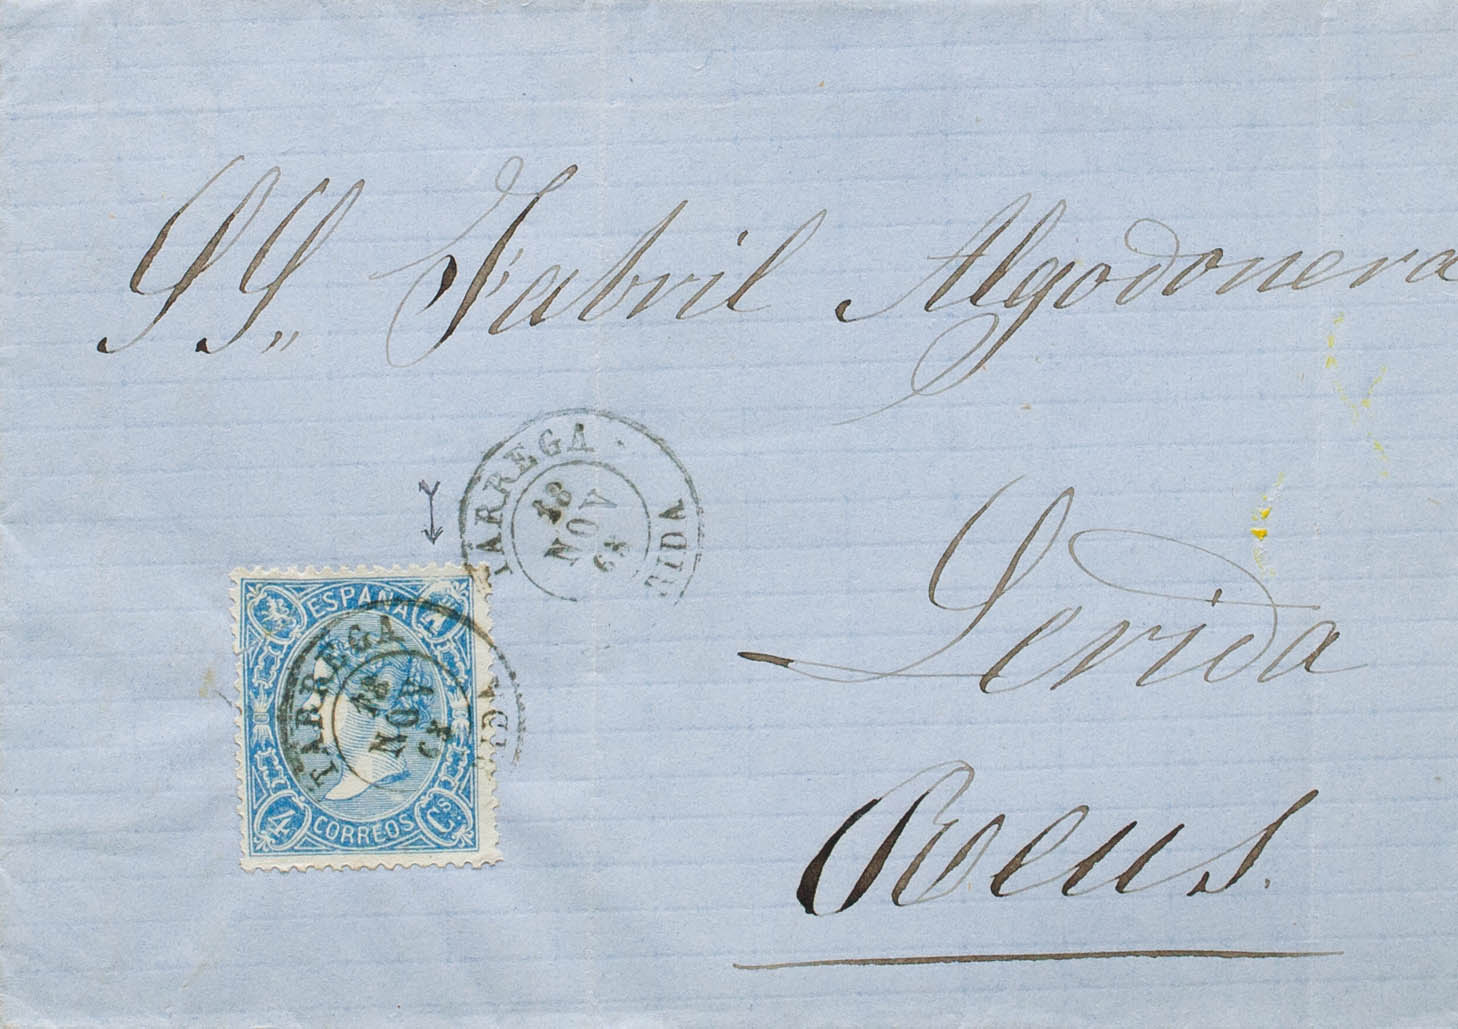 SS,, Fabril Algodonera
TARREGA
18
NOV
65
RIDA
Lerida
ESPAÑA
4
TARREGA
18
NOV
65
RIDA
4
CORREOS
Cs
Reus.